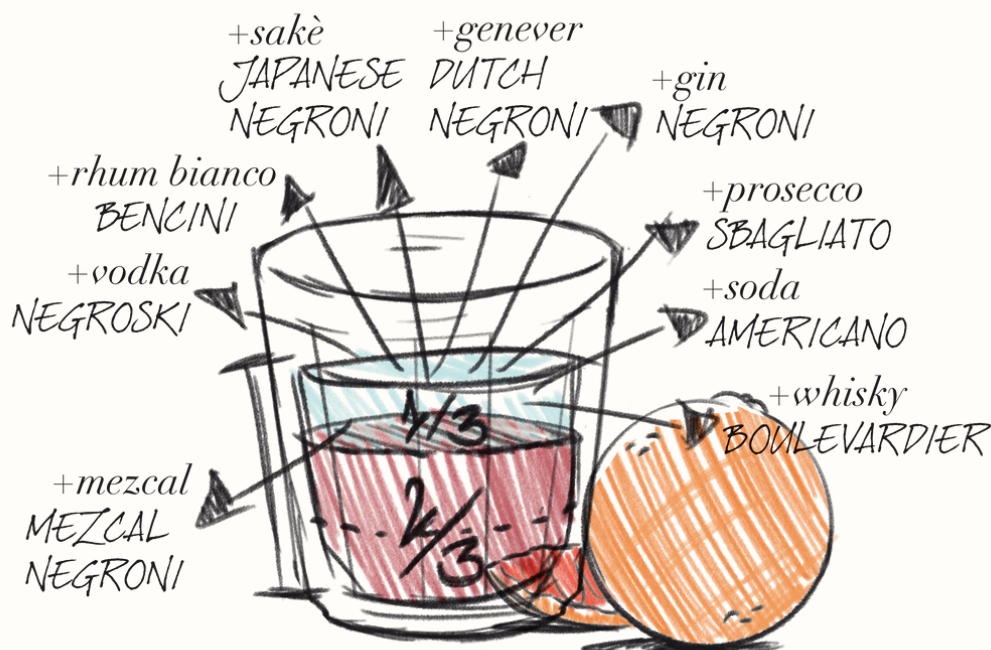 +sakè
JAPANESE
NEGRONI
+genever
DUTCH
NEGRONI
+gin
NEGRONI
+rhum bianco
BENCINI
+prosecco
SBAGLIATO
+vodka
NEGROSKI
+soda
AMERICANO
+whisky
BOULEVARDIER
1/3
+mezcal
MEZCAL
NEGRONI
2/3